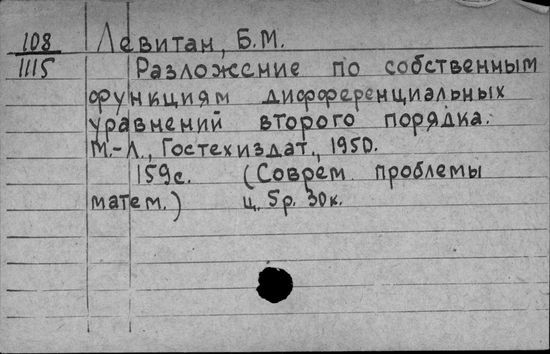 108 Левитан, Б.М.
1115 Разложение по собственным
функциям дифференциальных
уравнений второго порядка.
М.-Л., Гостехиздат., 1950.
159с. (Соврем. проблемы
матем.) ц. 5р. 30к.